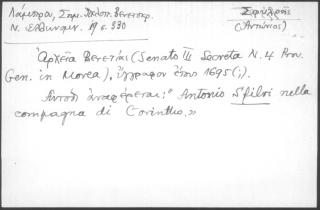 Λάμπρου, Σημ. Πελοπ. Βενετοκρ.
Σφυλρῆς
Ν. Ἑλληνομν. 19 σ. 330
(Ἀντώνιος)
Ἀρχεῖα Βενετίας (Senato III Secreta N. 4 Prov.
Gen. in Morea), ἔγγραφον ἔτους 1695(;).
Αὐτόθι ἀναφέρεται: "Antonio Sfilri nella
compagna di Corintho.»